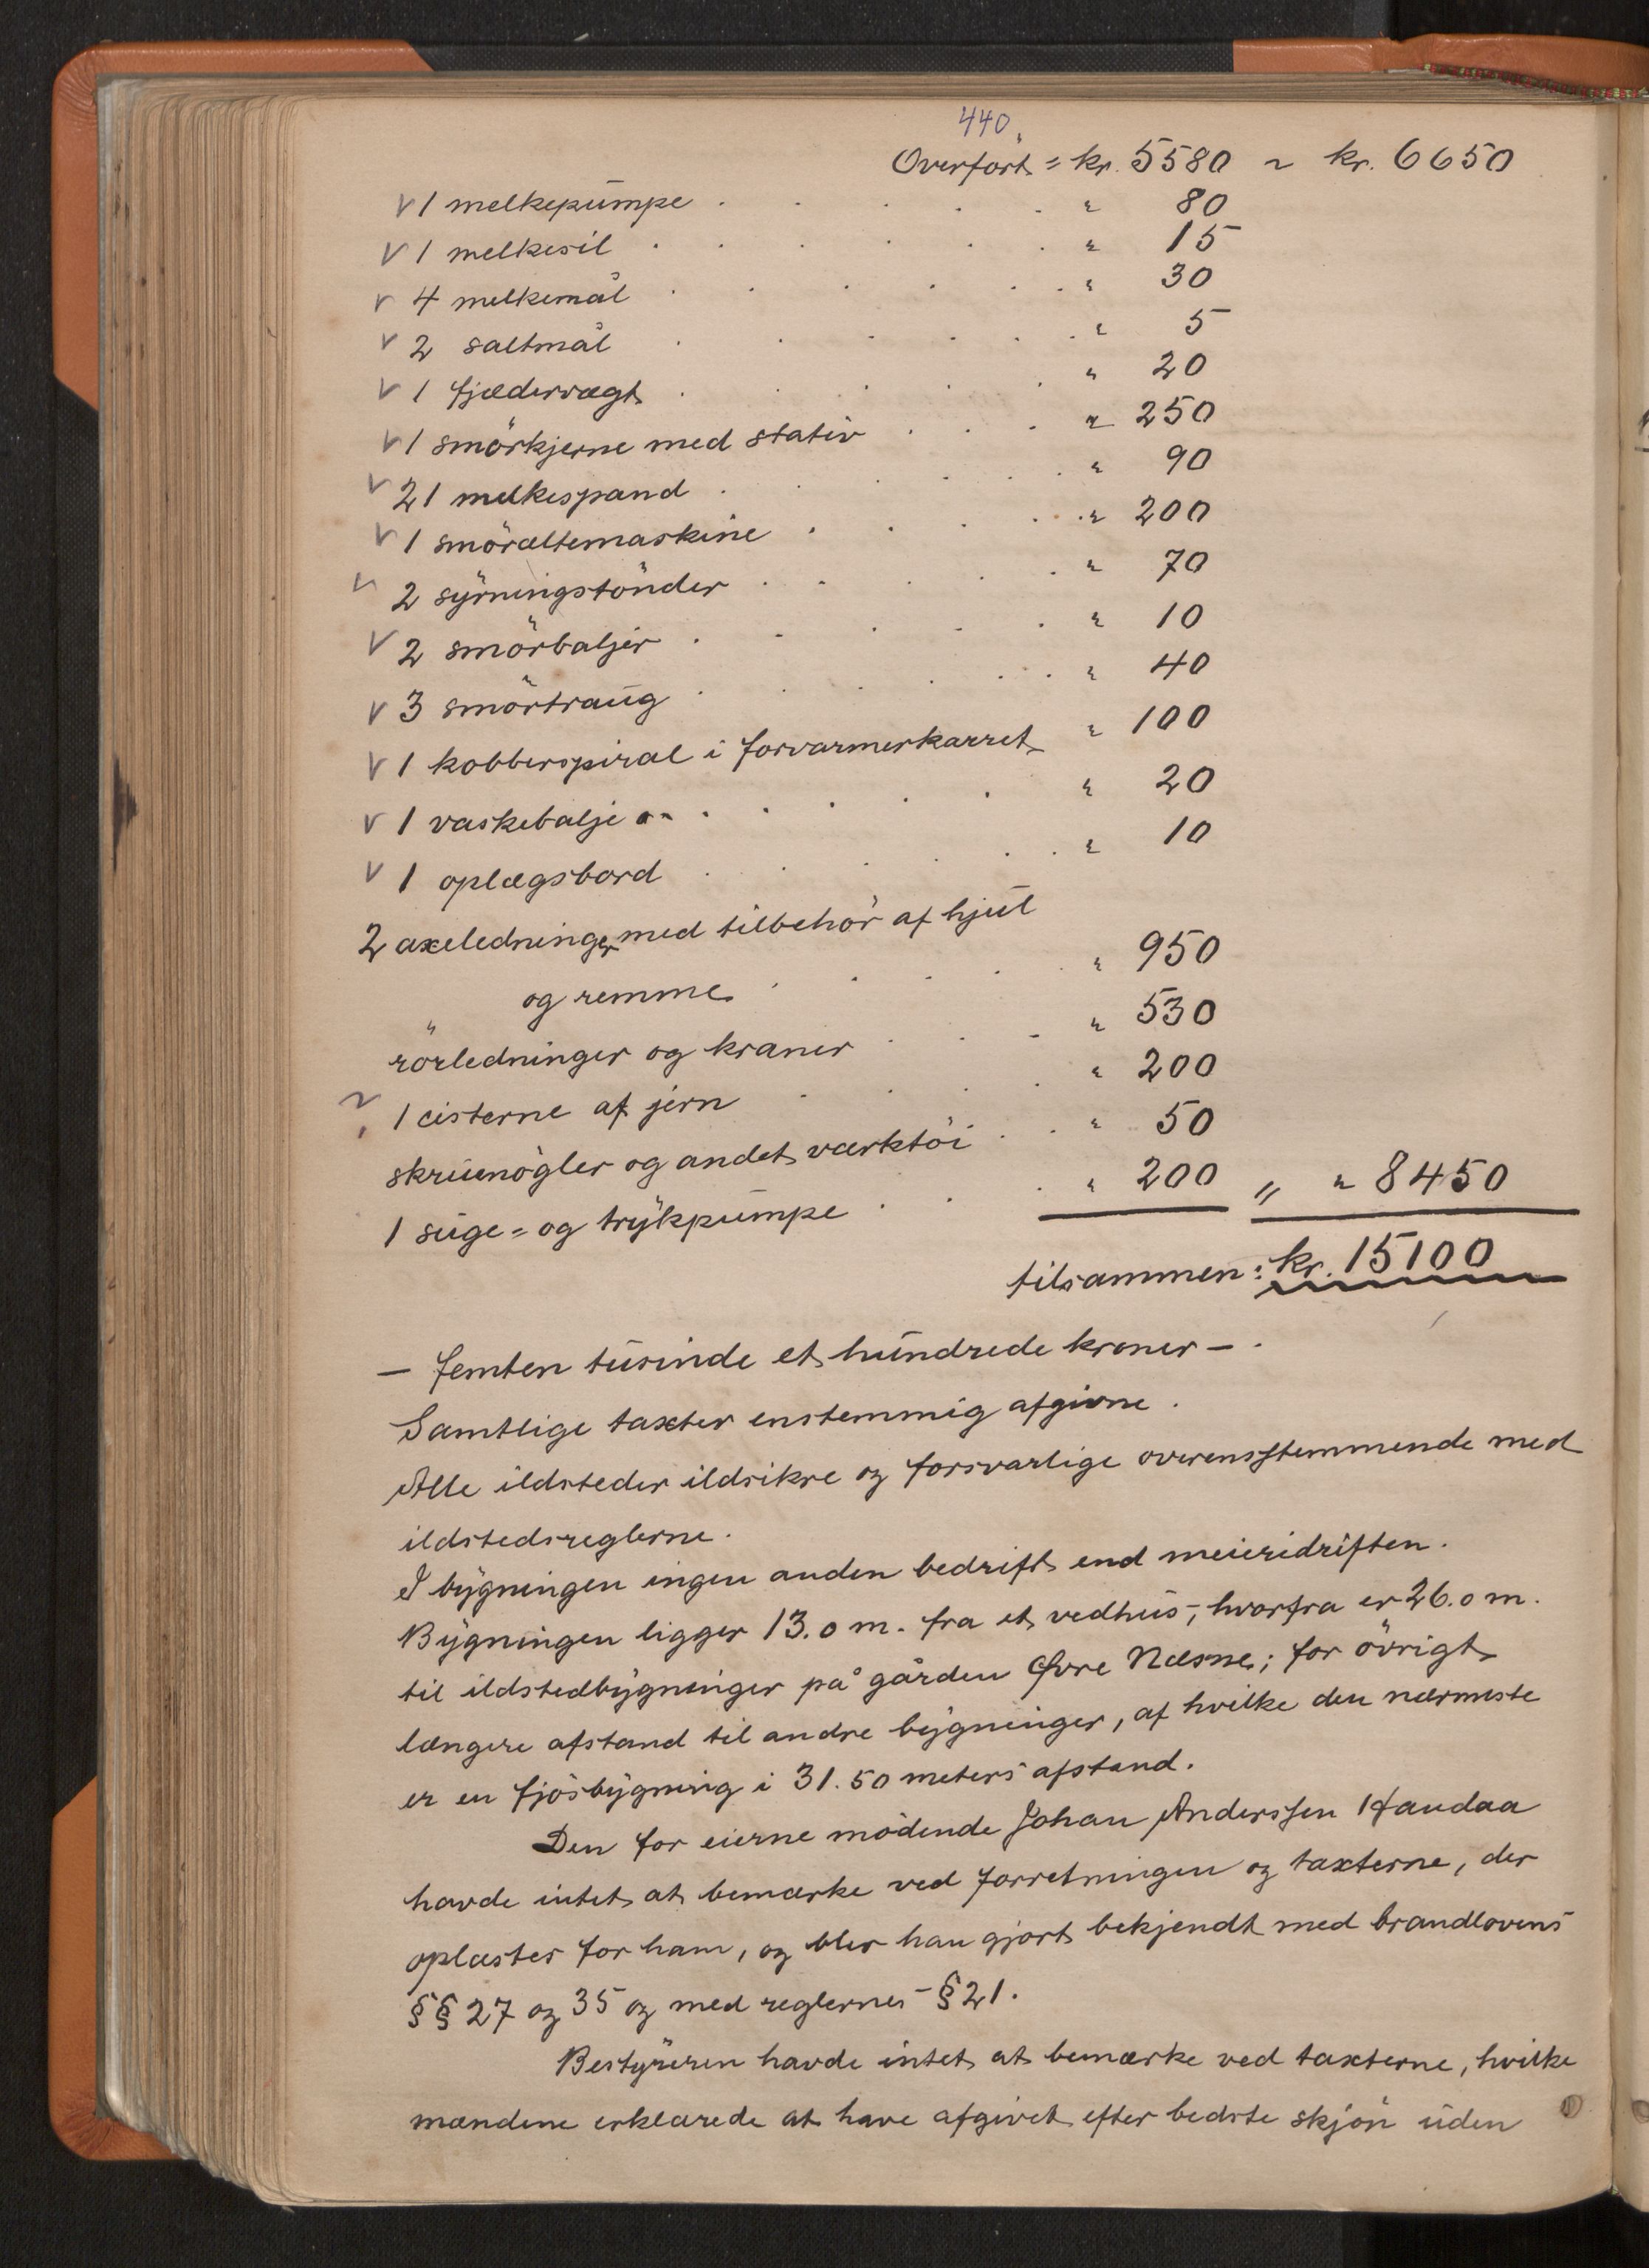 440.
Overført = kr. 5580 ~ kr. 6650
V 1 melkepumpe . . . . . " 80
V 1 melkesil . . . . . . " 15
V 4 melkemål . . . . . . " 30
V 2 saltmål . . . . . . " 5
V 1 fjædervægt . . . . " 20
V 1 smörkjerne med stativ . . . " 250
V 21 melkespand . . . . . " 90
V 1 smöræltemaskine . . . . . " 200
V 2 syrningstönder . . . . . " 70
V 2 smörbaljer . . . . . " 10
V 3 smörtraug . . . . . " 40
V 1 kobberspiral i forvarmerkarret " 100
V 1 vaskebalje . . . . . " 20
V 1 oplægsbord . . . . . " 10
2 axeledninger med tilbehör af hjul
og remme . . . . " 950
rörledninger og kraner . . . " 530
1 cisterne af jern . . . " 200
skruenögler og andet værktöi . . " 50
1 suge- og trykpumpe . . . " 200 " " 8450
tilsammen: kr. 15100
— femten tusinde et hundrede kroner — .
Samtlige taxter enstemmig afgivne .
Alle ildsteder ildsikre og forsvarlige overensstemmende med
ildstedsreglerne .
I bygningen ingen anden bedrift end meieridriften .
Bygningen ligger 13.0 m. fra et vedhus, hvorfra er 26.0 m.
til ildstedbygninger på gården Øvre Næsne; for övrigt
længere afstand til andre bygninger, af hvilke den nærmeste
er en fjösbygning i 31.50 meters afstand.
Den for eierne mödende Johan Anderssen Haudaa
havde intet at bemærke ved forretningen og taxterne, der
oplæstes for ham, og blev han gjort bekjendt med brandlovens
§§ 27 og 35 og med reglernes § 21.
Bestyreren havde intet at bemærke ved taxterne, hvilke
mændene erklærede at have afgivet efter bedste skjön uden